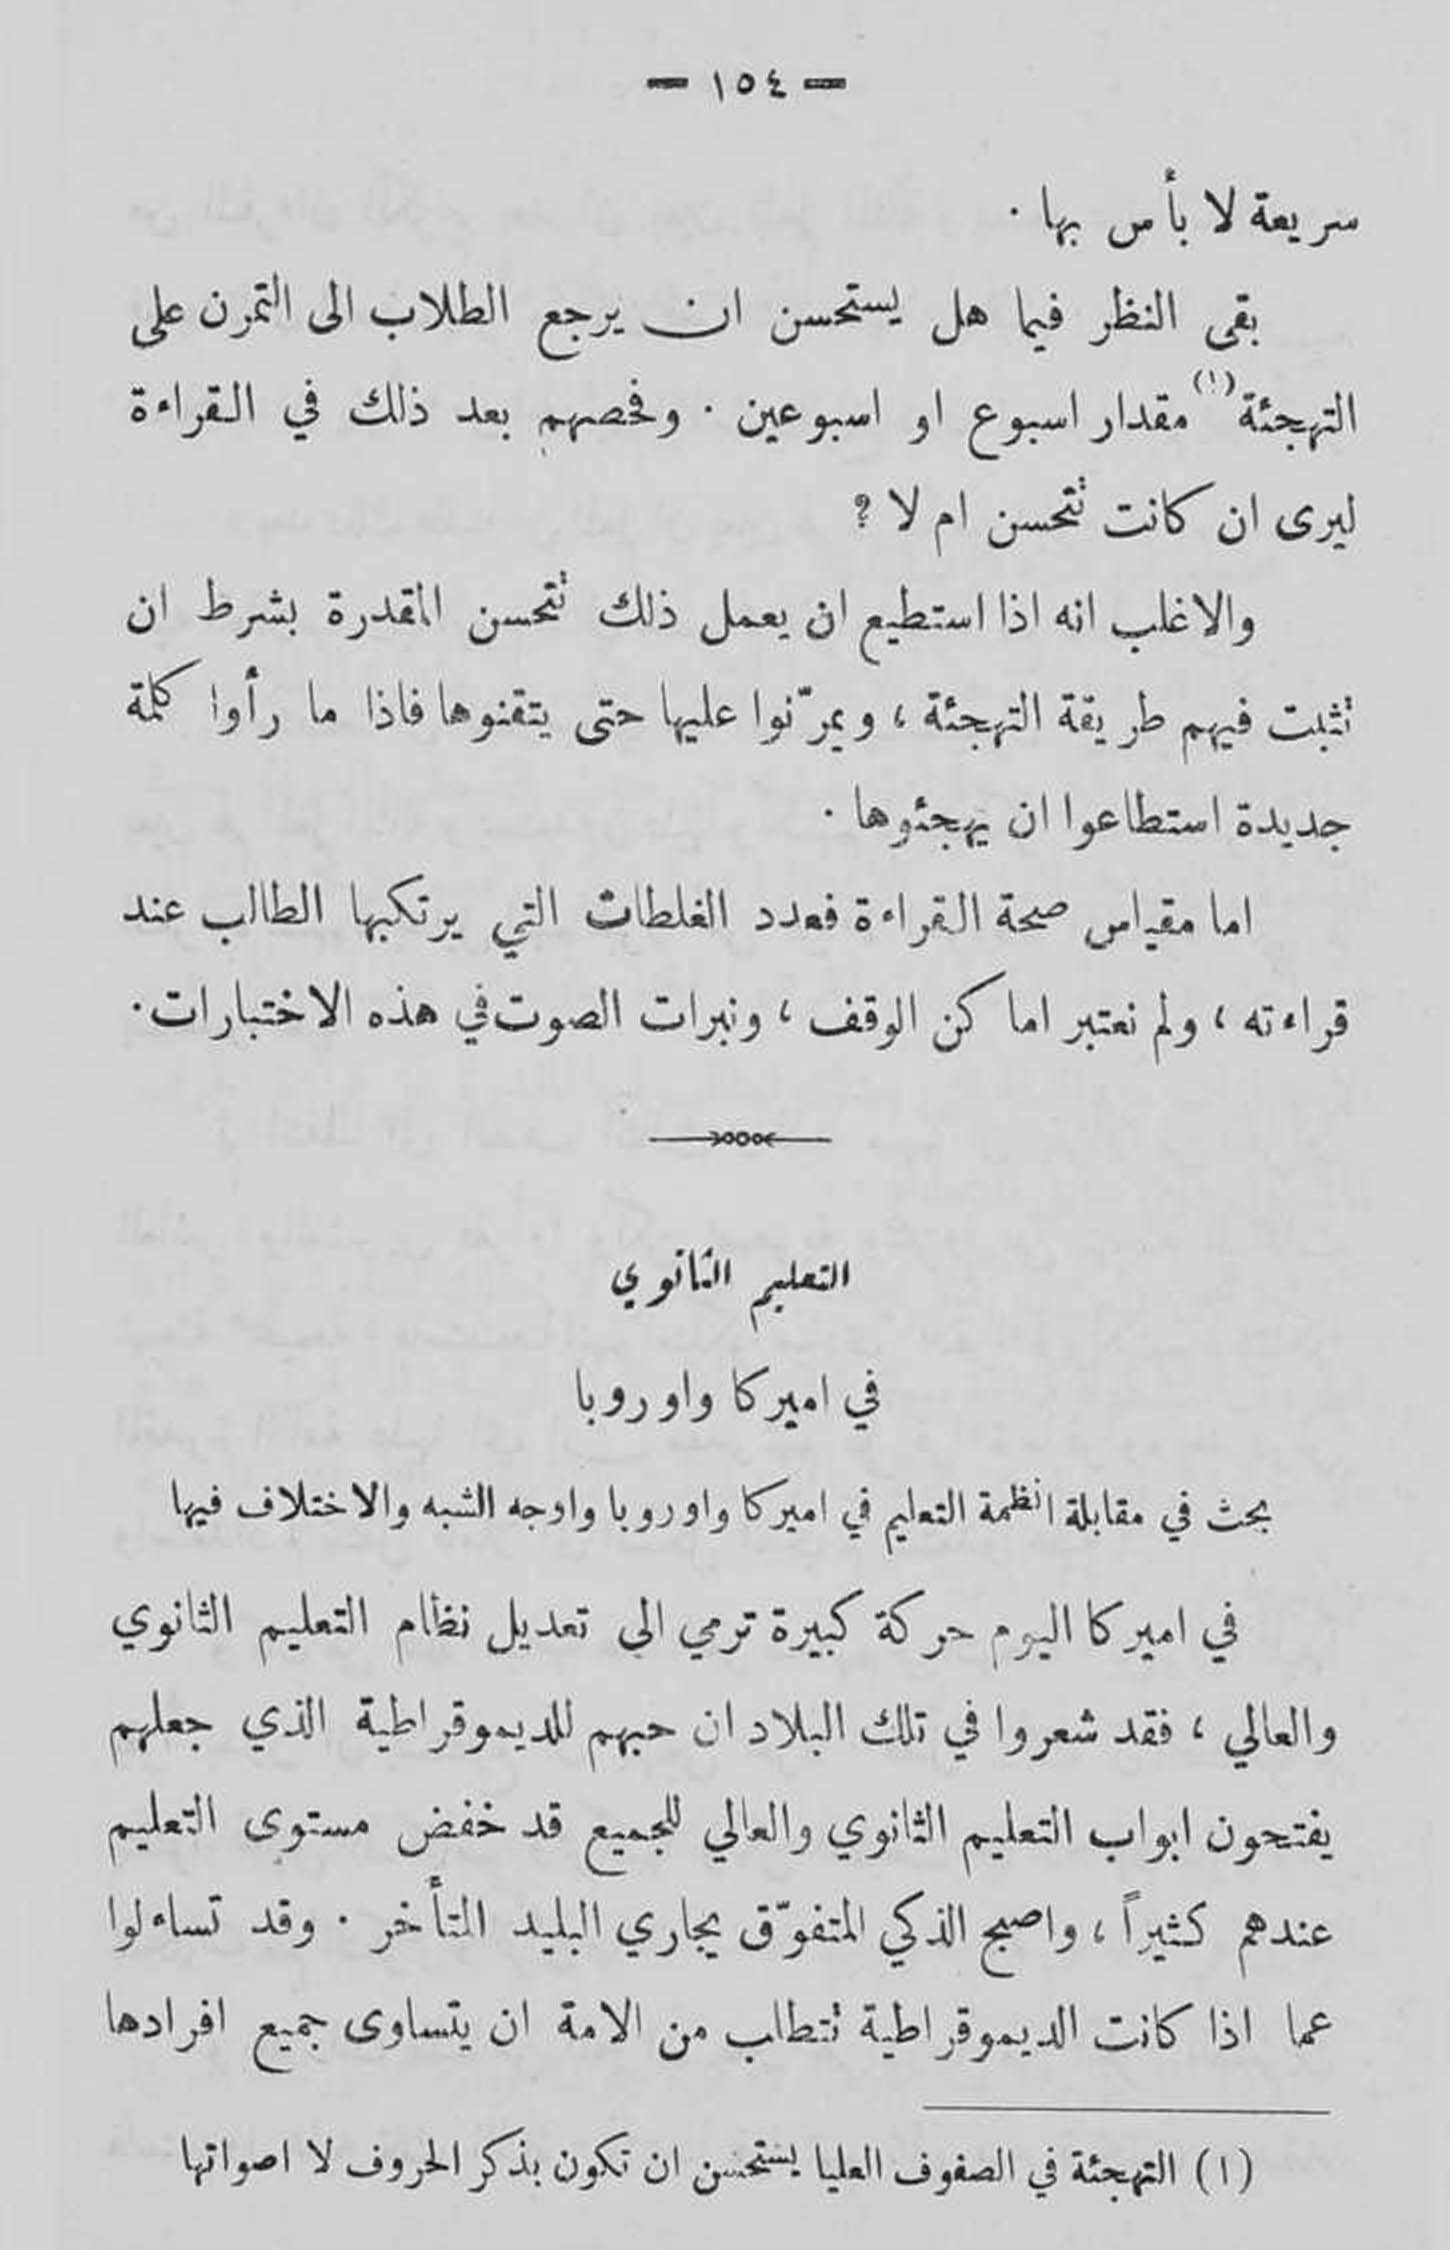 — ١٥٤ —
سريعة لا بأس بها ·
بقى النظر فيما هل يستحسن ان يرجع الطلاب الى التمرن على
التهجئة(١) مقدار اسبوع او اسبوعين · وفحصهم بعد ذلك في القراءة
ليرى ان كانت تتحسن ام لا ؟
والاغلب انه اذا استطيع ان يعمل ذلك تتحسن المقدرة بشرط ان
تثبت فيهم طريقة التهجئة ، ويمرّنوا عليها حتى يتقنوها فاذا ما رأوا كلمة
جديدة استطاعوا ان يهجئوها ·
اما مقياس صحة القراءة فعدد الغلطات التي يرتكبها الطالب عند
قراءته ، ولم نعتبر اماكن الوقف ، ونبرات الصوت في هذه الاختبارات ·
التعليم الثانوي
في اميركا واوروبا
بحث في مقابلة انظمة التعليم في اميركا واوروبا واوجه الشبه والاختلاف فيها
في اميركا اليوم حركة كبيرة ترمي الى تعديل نظام التعليم الثانوي
والعالي ، فقد شعروا في تلك البلاد ان حبهم للديموقراطية الذي جعلهم
يفتحون ابواب التعليم الثانوي والعالي للجميع قد خفض مستوى التعليم
عندهم كثيراً ، واصبح الذكي المتفوّق يجاري البليد المتأخر · وقد تساءلوا
عما اذا كانت الديموقراطية تتطلب من الامة ان يتساوى جميع افرادها
(١) التهجئة في الصفوف العليا يستحسن ان تكون بذكر الحروف لا اصواتها